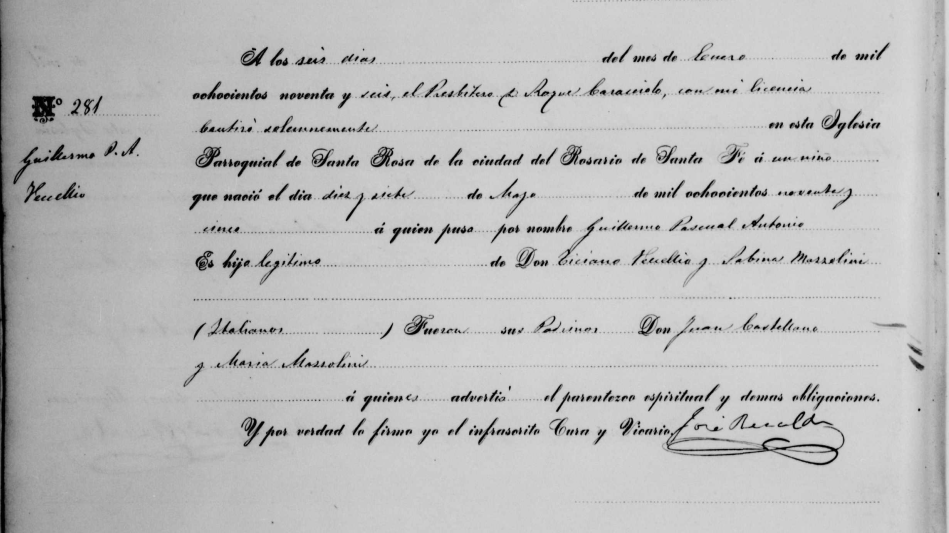 A los seis dias del mes de Enero de mil
ochocientos noventa y seis, el Presbitero D. Roque Caracciolo, con mi licencia
bautizó solemnemente en esta Iglesia
Nº 281
Guillermo P. A.
Vecellio
Parroquial de Santa Rosa de la ciudad del Rosario de Santa Fé á un niño
que nació el dia dies y siete de Mayo de mil ochocientos noventa y
cinco á quien puso por nombre Guillermo Pascual Antonio
Es hijo legitimo de Don Ticiano Vecellio y Sabina Mazzolini
( Italianos ) Fueron sus Padrinos Don Juan Castellano
y Maria Mazzolini
á quienes advertió el parentezco espiritual y demas obligaciones.
Y por verdad lo firmo yo el infrascrito Cura y Vicario, José